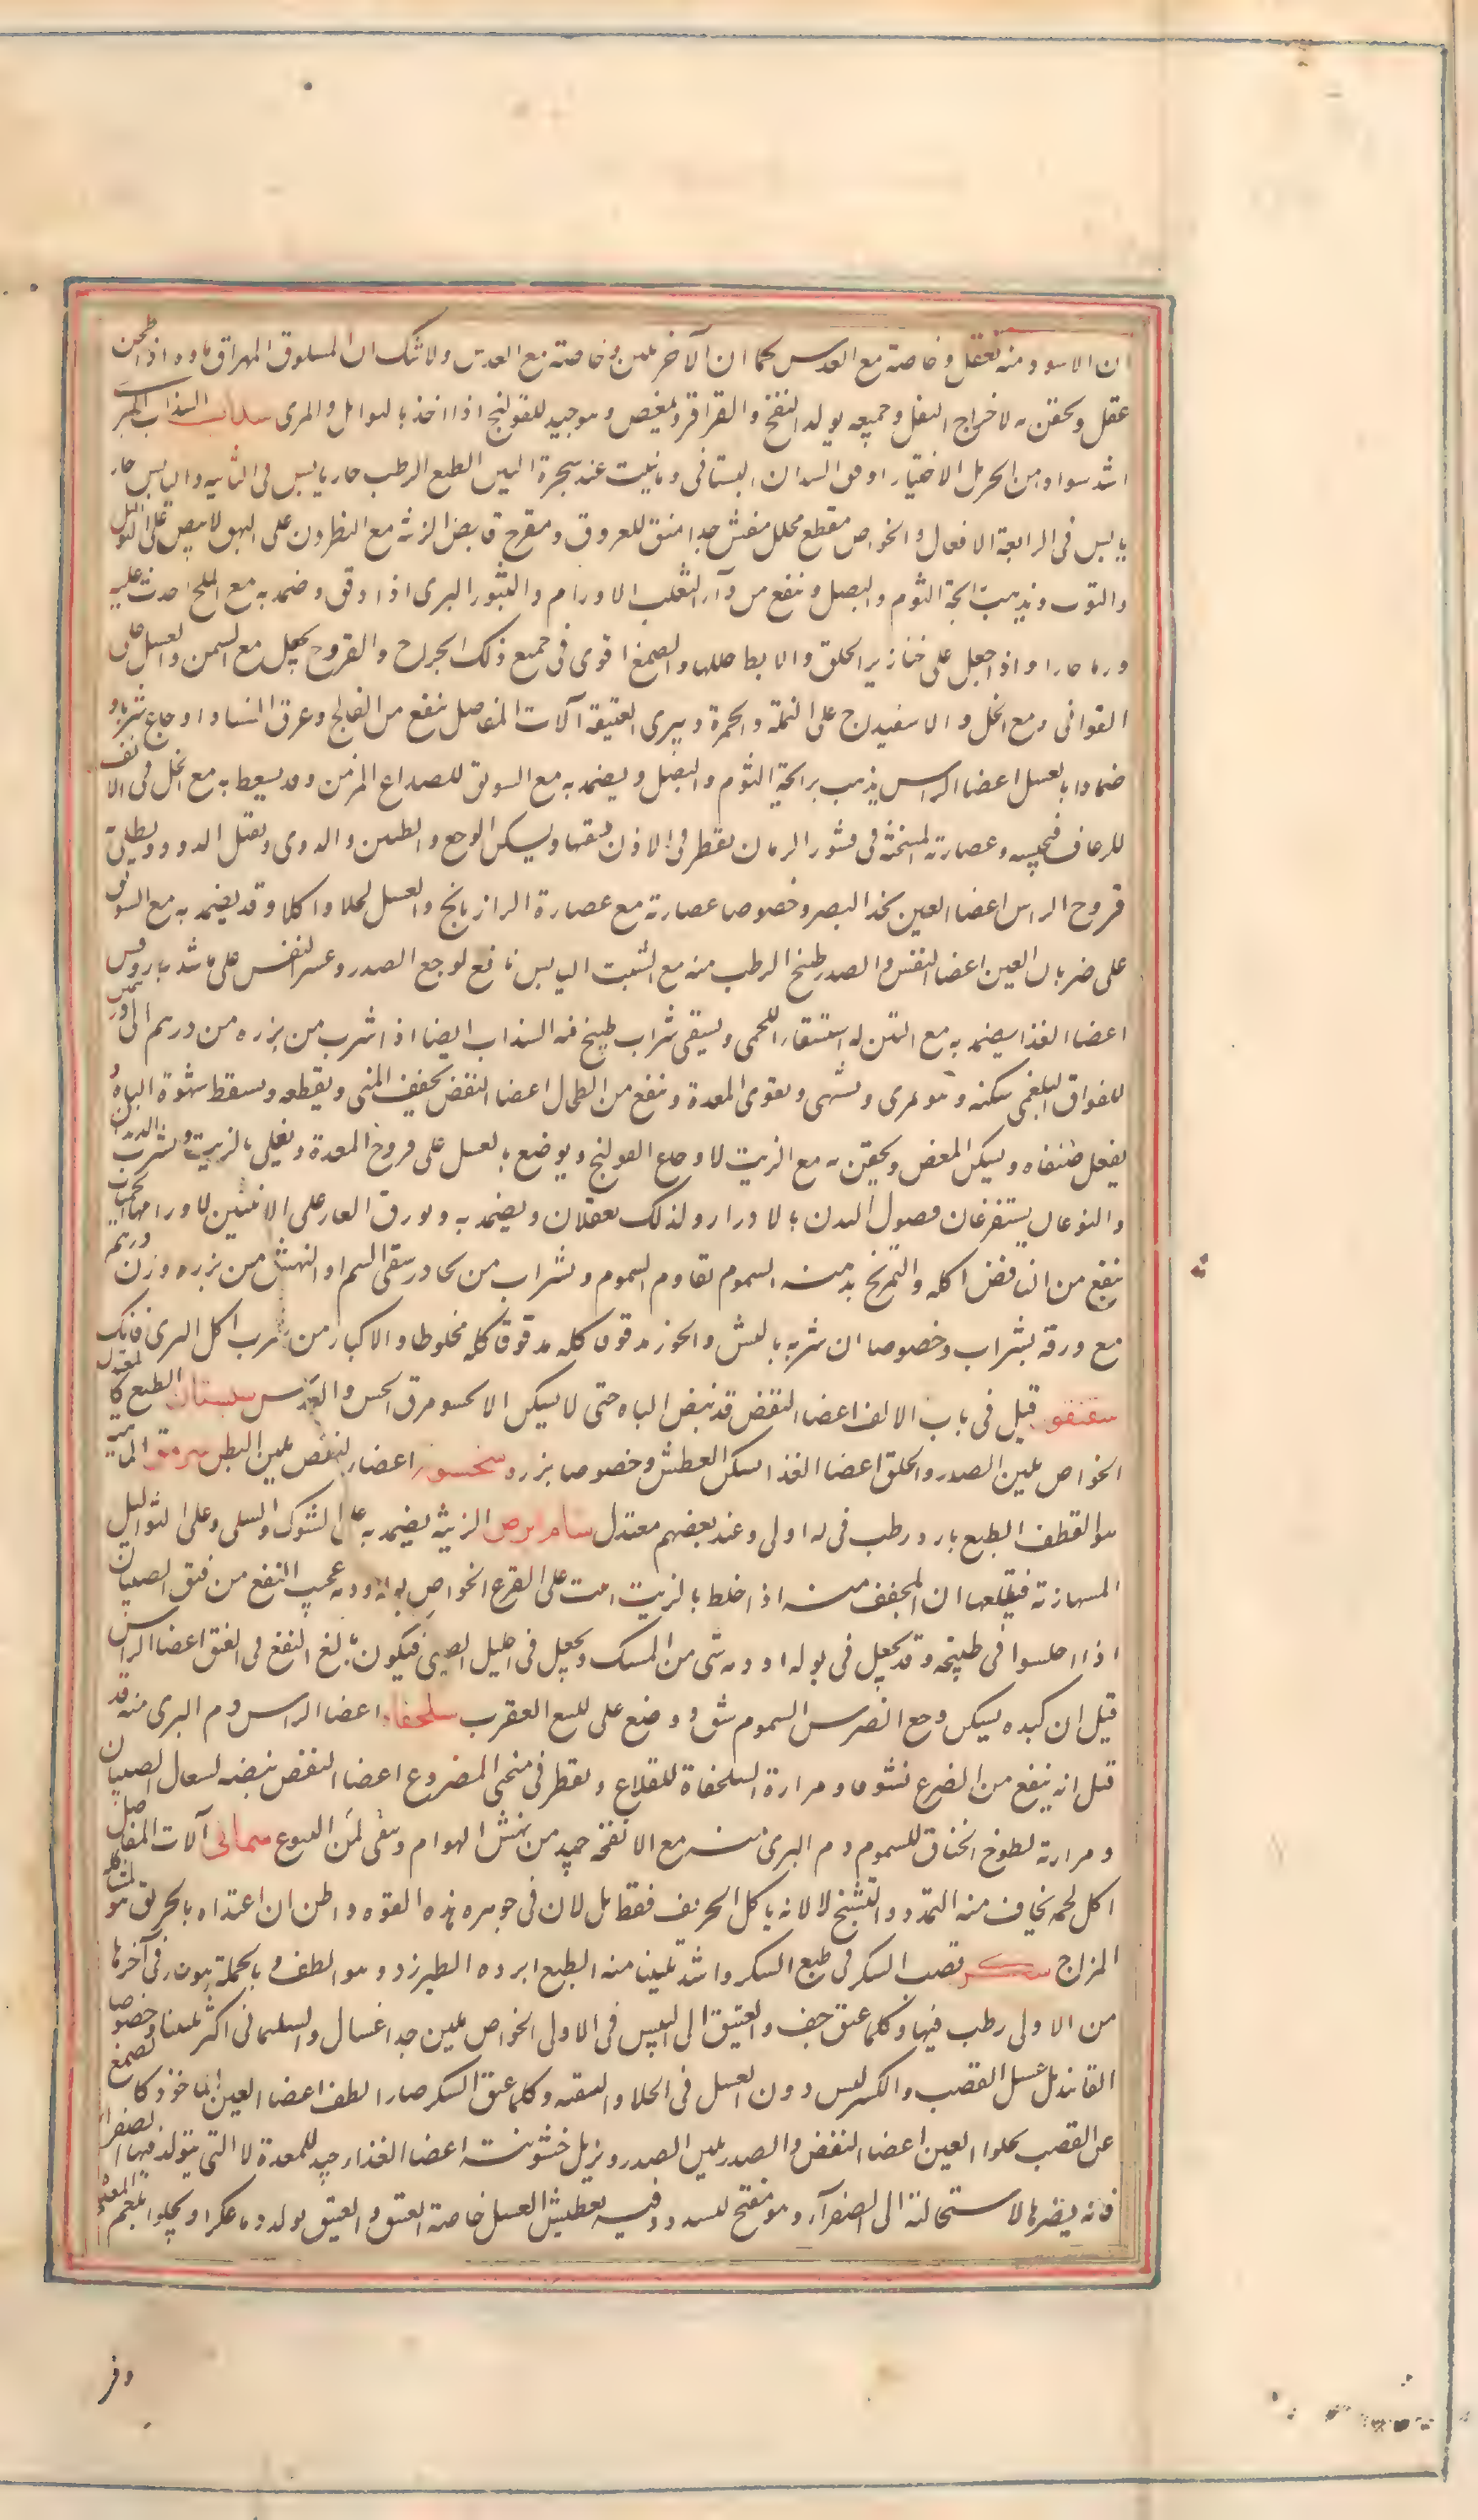 ان الاسود منه تعقل وخاصة مع العدس كما ان الآخر ملين وخاصته مع العدس ولا شك ان المسلوق المهراق ماوه اذا طحن
عقل ويحقن به لاخراج الثفل وجميعه يولد النفخ والقراقر والمغص وهو جيد للقولنج اذا اخذ بالتوابل والمرى سذاب السذاب البرى
اشد سوادا من الحرمل الاختيار اوفق السذاب البستانى وما ينبت عند شجرة التين الطبع الرطب حار يابس فى الثانيه واليابس حار
يابس فى الرابعة الافعال والخواص مقطع محلل مفش جدا منق للعروق ومقرح قابض الزينه مع النطرون على البهق الابيض على الثواليل
والتوث ويذهب رايحة الثوم والبصل وينفع من دآء الثعلب الاورام والبثور البرى اذا دق وضمد به مع الملح احدث عليه
ورما حارا واذا جعل على خنازير الحلق والابط حللها والصمغ اقوى فى جميع ذلك الجراح والقروح يجعل مع السمن والعسل على
القوافى ومع الخل والاسفيداج على النملة والحمرة ويبرى العتيقة آلات المفاصل ينفع من الفالج وعرق النسا واوجاع شربا او
ضمادا بالعسل اعضا الراس يذهب برايحة الثوم والبصل ويضمد به مع السويق للصداع المزمن وقد يسعط به مع الخل فى الانف
للرعاف فيحبسه وعصارته المسخنة فى قشور الرمان يقطر فى الاذن فينقيها ويسكن الوجع والطنين والدوى ويقتل الدود ويطلى به
قروح الراس اعضا العين يحد البصر وخصوصا عصارته مع عصارة الرازيانج والعسل كحلا واكلا وقد يضمد به مع السويق
على ضربان العين اعضا النفس والصدر طبيخ الرطب منه مع الشبت اليابس نافع لوجع الصدر وعسر النفس على ما شهد به روفس
اعضا الغذا يضمد به مع التين له استسقاء اللحمى ويسقى شراب طبخ فيه السذاب ايضا اذا شرب من بزره من درهم الى درهمين
للفواق البلغمى سكنه وهو يمرى ويشهى ويقوى المعدة وينفع من الطحال اعضا النفض يجفف المنى ويقطعه ويسقط شهوة الباه
يعقل ضنفاه ويسكن المغص ويحقن به مع الزيت لاوجاع القولنج ويوضع بالعسل على قروح المعدة ويغلى بالزيت ويشرب للديدان
والنوعان يستفرغان فضول البدن بالادرار ولذلك يعقلان ويضمد به وبورق الغار على الانثيين لاورامها الحميات
ينفع من النافض اكله والتمريخ بدهنه السموم تقاوم السموم ويشراب من يحاذر سقى السم او النهش من بزره وزن درهم
مع ورقه بشراب وخصوصا ان شربه بالتين والجوز مدقوقا كله مدقوقا كله مخلوطا والاكثار من شرب اكل البرى قاتل
سقنقور قيل فى باب الالف اعضا النفض قد ينهض الباه حتى لا يسكن الا بحسو مرق الخس والعدس سبستان الطبع كالمعتدل
الخواص ملين الصدر والحلق اعضا الغذا يسكن العطش وخصوصا بزره اعضاء النفض ملين البطن سرمق الماهية
هو القطف الطبع بارد رطب فى له اولى وعند بعضهم معتدل سام ابرص الزينه يضمد به على الشوك والسلى وعلى الثواليل
المسمارية فيقلعها ان المجفف منه اذا خلط بالزيت انبت على القرع الخواص بوله ودمه عجيب النفع من فتق الصبيان
اذا اجلسوا فى طبيخه وقد يجعل فى بوله او دمه شى من المسك ويجعل فى احليل الصبى فيكون بالغ النفع فى الفتق اعضا الراس
قيل ان كبده يسكن وجع الضرس السموم يشق ووضع على للسع العقرب سلحفاة اعضا الراس دم البرى منه قد
قيل انه ينفع من الصرع نشوقا ومرارة السلحفاة للقلاع ويقطر فى منخرى المصروع اعضا النفض بيضه لسعال الصبيان
ومرارته لطوخ الخناق للسموم دم البرى منه مع الانفخه جيد من نهش الهوام وسقى لمن اليتوع سمانى آلات المفاصل
اكل لحمه يخاف منه التمدد والتشنج لا لانه ياكل الخربق فقط بل لان فى جوهره هذه القوة واظن ان اغتذاءه بالخربق هو لمشاكلة
المزاج سكر قصب السكر فى طبع السكر واشد تليينا منه الطبع ابرده الطبرزد وهو الطف وبالجملة هو حار فى آخرها
من الاولى رطب فيها وكلما عتق جف والعتيق الى اليبس فى الاولى الخواص ملين جدا غسال والسليمانى اكثر تليينا وخصوصا
الفانيذ بل عسل القصب والسكر ليس دون العسل فى الجلا والتنقية وكلما عتق السكر صار الطف اعضا العين الماخوذ كالصمغ
على القصب يجلوا العين اعضا النفض والصدر يلين الصدر ويزيل خشونته اعضا الغذاء جيد للمعدة لا التى يتولد فيها الصفراء
فانه يضرها لاستحالته الى الصفرآء وهو مفتح للسدد وفيه تعطيش العسل خاصة العتيق والعتيق يولد دما عكرا ويجلوا بلغم المعدة
وفر